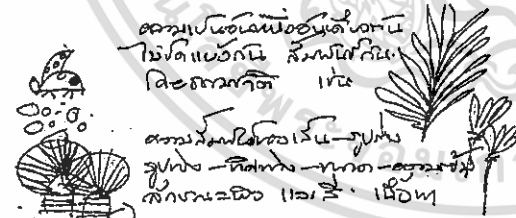 ความเป็นอันหนึ่งอันเดียวกัน
ไม่ขัดแย้งกัน สัมพันธ์กัน
โดยธรรมชาติ เช่น
ความสัมพันธ์ของเส้น-รูปร่าง
รูปทรง-ทิศทาง-ขนาด-ความเข้ม
ลักษณะผิว และสี เนื้อหา